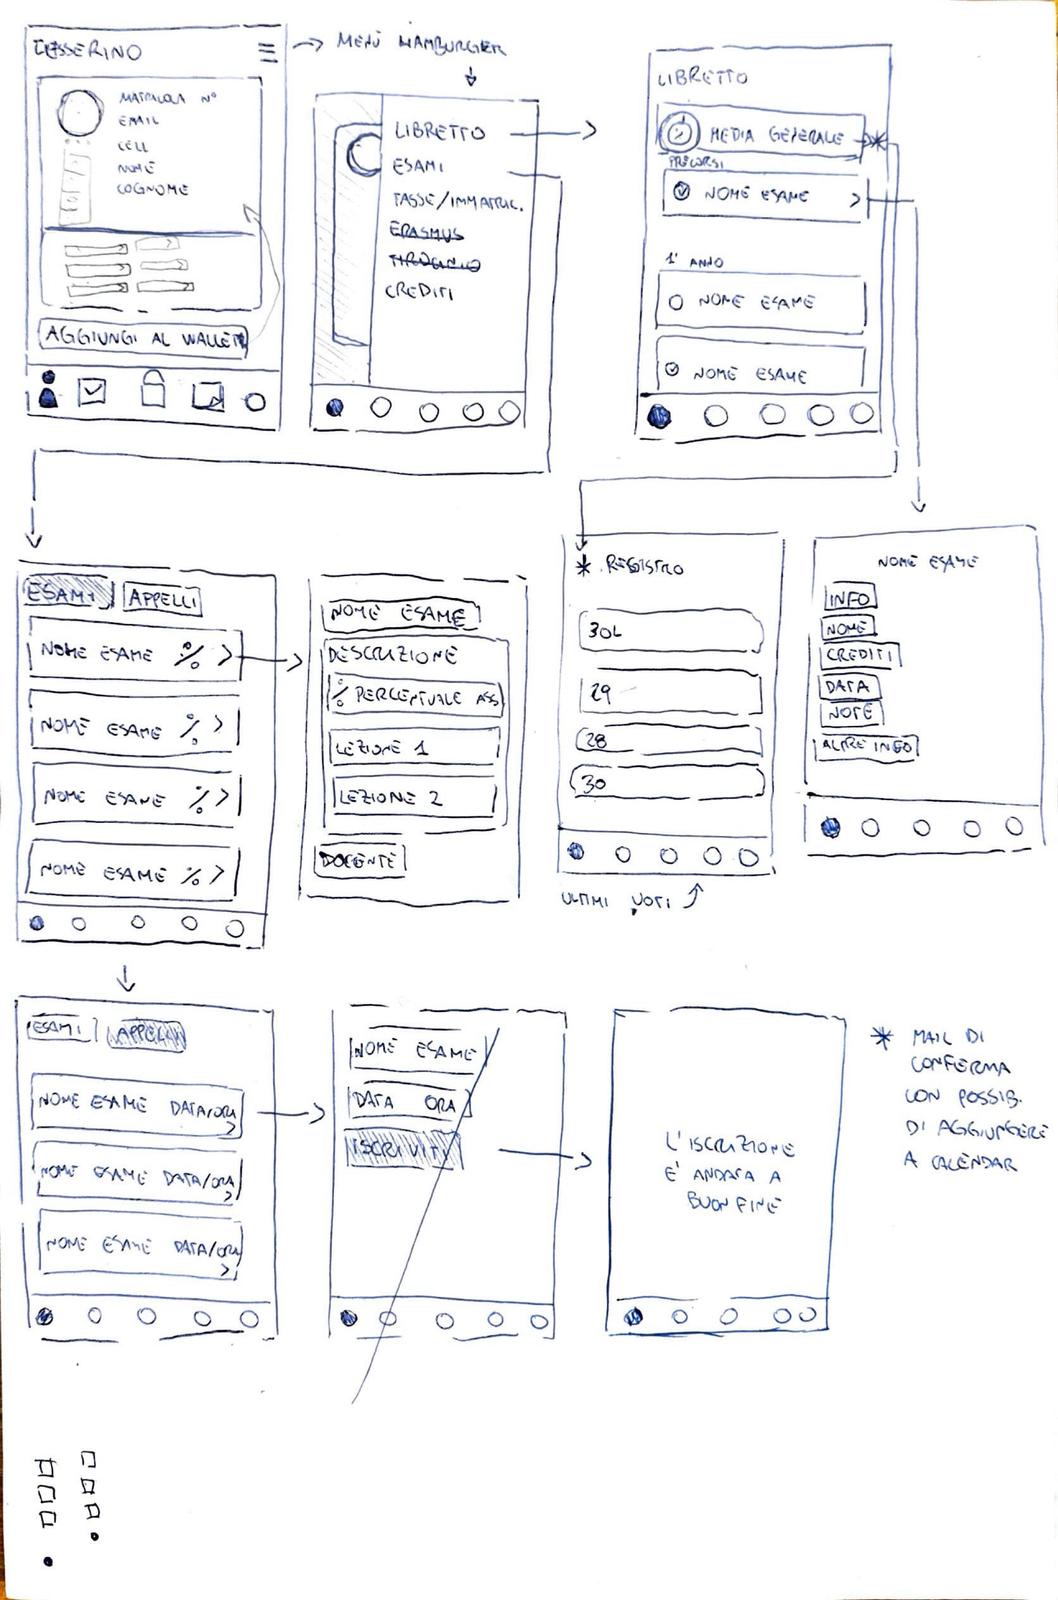 TESSERINO
MATRICOLA N°
EMAIL
CELL
NOME
COGNOME
AGGIUNGI AL WALLET
MENÙ HAMBURGER
LIBRETTO
ESAMI
TASSE/IMMATRIC.
ERASMUS
TIROCINIO
CREDITI
LIBRETTO
MEDIA GENERALE *
NOME ESAME >
1° ANNO
NOME ESAME
NOME ESAME
ESAMI APPELLI
NOME ESAME % >
NOME ESAME % >
NOME ESAME % >
NOME ESAME % >
NOME ESAME
DESCRIZIONE
% PERCENTUALE ASS
LEZIONE 1
LEZIONE 2
DOCENTE
* REGISTRO
30L
29
28
30
ULTIMI VOTI
NOME ESAME
INFO
NOME
CREDITI
DATA
NOTE
ALTRE INFO
ESAMI APPELLI
NOME ESAME DATA/ORA >
NOME ESAME DATA/ORA >
NOME ESAME DATA/ORA >
NOME ESAME
DATA ORA
ISCRIVITI
L'ISCRIZIONE
E' ANDATA A
BUON FINE
* MAIL DI
CONFERMA
CON POSSIB.
DI AGGIUNGERE
A CALENDAR